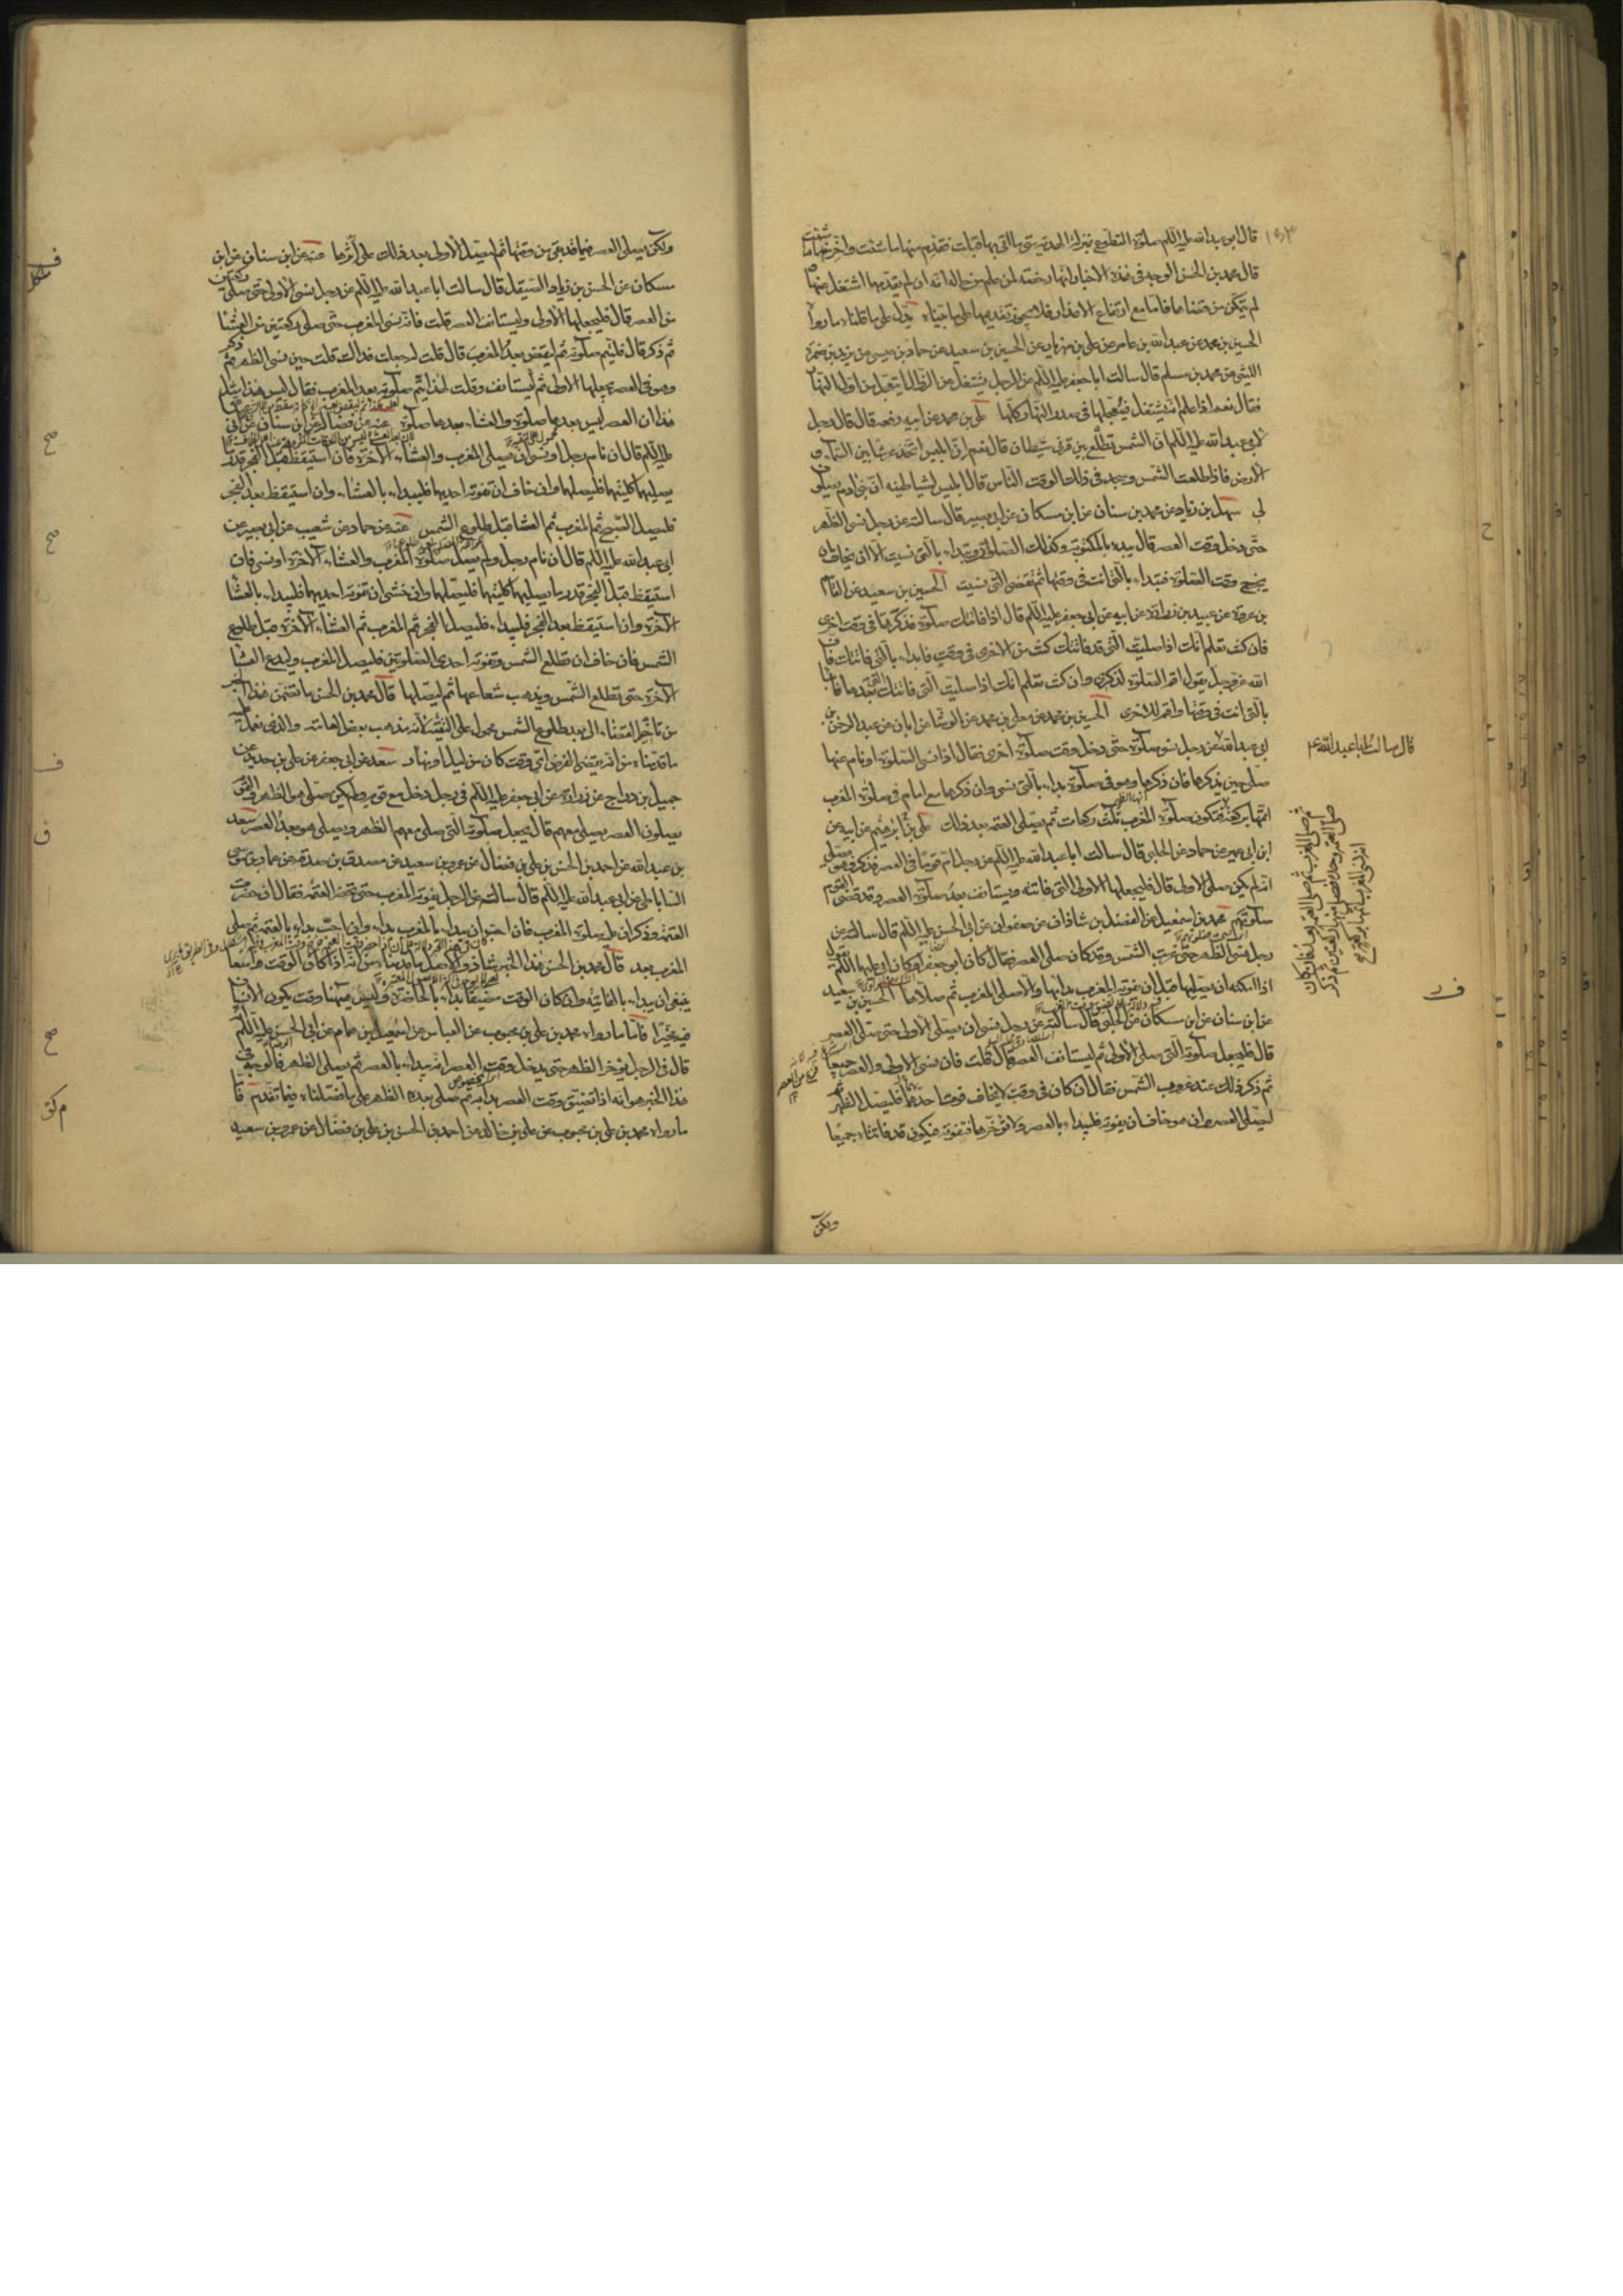 قال ابو عبد الله عليه السلام صلوة التطوع بمنزلة الهدية متى ما اتى بها قبلت فقدم منها ما شئت واخر منها ما شئت
قال محمد بن الحسن الوجه فى هذه الاخبار انها رخصة لمن علم من حاله انه ان لم يقدمها اشتغل عنها
لم يتمكن من قضائها فاما مع ارتفاع الاعذار فلا يجوز تقديمها على ما بيناه يدل على ما قلناه ما رواه
الحسين بن محمد عن عبد الله بن عامر عن على بن مهزيار عن الحسين بن سعيد عن حماد بن عيسى عن يزيد بن ضمرة
الليثى عن محمد بن مسلم قال سالت ابا جعفر عليه السلام عن الرجل يشتغل عن الزوال ايتعجل من اول النهار
فقال نعم اذا علم انه يشتغل فيعجلها فى صدر النهار كلها على بن محمد عن ابيه رفعه قال قال رجل
لابى عبد الله عليه السلام ان الشمس تطلع بين قرنى شيطان قال نعم ان ابليس اتخذ عرشا بين السماء و
الارض فاذا طلعت الشمس وسجد فى ذلك الوقت الناس قال ابليس لشياطينه ان بنى ادم يصلون
لى سهل بن زياد عن محمد بن سنان عن ابن مسكان عن ابى بصير قال سالته عن رجل نسى الظهر
حتى دخل وقت العصر قال يبدء بالمكتوبة وكذلك الصلوات تبداء بالتى نسيت الا ان يخاف ان
يخرج وقت الصلوة فتبداء بالتى انت فى وقتها ثم تقضى التى نسيت الحسين بن سعيد عن القاسم
بن عروة عن عبيد بن زرارة عن ابيه عن ابى جعفر عليه السلام قال اذا فاتتك صلوة فذكرتها فى وقت اخرى
فان كنت تعلم انك اذا صليت التى قد فاتتك كنت من الاخرى فى وقت فابداء بالتى فاتتك فان
الله عز وجل يقول اقم الصلوة لذكرى وان كنت تعلم انك اذا صليت التى فاتتك فاتتك التى بعدها فابدا
بالتى انت فى وقتها واقض الاخرى الحسين بن محمد عن معلى بن محمد عن الوشا عن ابان عن عبد الرحمن بن
ابى عبد الله عن رجل نسى صلوة حتى دخل وقت صلوة اخرى فقال اذا نسى الصلوة او نام عنها
صلى حين يذكرها فان ذكرها وهو فى صلوة بداء بالتى نسى وان ذكرها مع امام فى صلوة المغرب
اتمها بركعة
ثم صلى المغرب ثم صلى العتمة بعدها فان كان
صلى العتمة وحده فصلى منها ركعتين ثم ذكر
انه نسى المغرب اتمها بركعة
فتكون صلوة المغرب ثلث ركعات ثم يصلى العتمة بعد ذلك على بن ابرهيم عن ابيه عن
ابن ابى عمير عن حماد عن الحلبى قال سالت ابا عبد الله عليه السلام عن رجل ام قوما فى العصر فذكر وهو يصلى
انه لم يكن صلى الاولى قال فليجعلها الاولى التى فاتته ويستانف بعد صلوة العصر وقد قضى القوم
صلوتهم محمد بن اسمعيل عن الفضل بن شاذان عن صفوان عن ابى الحسن عليه السلام قال سالته عن
رجل نسى الظهر حتى غربت الشمس وقد كان صلى العصر فقال كان ابو جعفر او كان ابى عليهما السلم يقول
اذا امكنه ان يصليها قبل ان تفوته المغرب بداء بها والا صلى المغرب ثم صلاها الحسين بن سعيد
عن ابن سنان عن ابن مسكان عن الحلبى قال سالته عن رجل نسى ان يصلى الاولى حتى صلى العصر
قال فليجعل صلوته التى صلى الاولى ثم ليستانف العصر قال قلت فان نسى الاولى والعصر جميعا
ثم ذكر ذلك عند غروب الشمس فقال ان كان فى وقت لا يخاف فوت احدهما فليصل الظهر ثم
ليصلى العصر وان هو خاف ان يفوته فليبداء بالعصر ولا يؤخرها فتفوته فيكون قد فاتتاه جميعا
قال سالت ابا عبد الله ع
ولكن
ولكن يصلى العصر فيما قد بقى من وقتها ثم ليصل الاولى بعد ذلك على اثرها عنه عن ابن سنان عن ابن
مسكان عن الحسن بن زياد الصيقل قال سالت ابا عبد الله عليه السلام عن رجل نسى الاولى حتى صلى ركعتين
من العصر قال فليجعلها الاولى وليستانف العصر قلت فانه نسى المغرب حتى صلى ركعتين من العشا
ثم ذكر قال فليتم صلوته ثم ليقض بعد المغرب قال قلت له جعلت فداك قلت حين نسى الظهر ثم ذكر
وهو فى العصر يجعلها الاولى ثم ليستانف وقلت لهذا يتم صلوته بعد المغرب فقال ليس هذا مثل
هذا ان العصر ليس بعدها صلوة والعشاء بعدها صلوة عنه عن فضالة عن ابن سنان عن ابى
عليه السلام قال ان نام رجل او نسى ان يصلى المغرب والعشاء الاخرة فان استيقظ قبل الفجر قدر
يصليهما كلتيهما فليصلهما وان خاف ان تفوته احديهما فليبداء بالعشاء وان استيقظ بعد الفجر
فليصل الصبح ثم المغرب ثم العشا قبل طلوع الشمس عنه عن حماد عن شعيب عن ابى بصير عن
ابى عبد الله عليه السلام قال ان نام رجل ولم يصل صلوة المغرب والعشاء الاخرة او نسى فان
استيقظ قبل الفجر قدر ما يصليهما كلتيهما فليصلهما وان خشى ان تفوته احديهما فليبداء بالعشا
الاخرة وان استيقظ بعد الفجر فليبداء فليصل الفجر ثم المغرب ثم العشاء الاخرة قبل طلوع
الشمس فان خاف ان تطلع الشمس وتفوته احدى الصلوتين فليصل المغرب وليدع العشا
الاخرة حتى تطلع الشمس ويذهب شعاعها ثم ليصلها قال محمد بن الحسن ما تضمن هذا الخبر
من تاخير القضاء الى بعد طلوع الشمس محمول على التقية لانه مذهب بعض العامة والذى نعمل عليه
ما قدمناه من انه يقضى الفرض اى وقت كان من ليل او نهار سعد عن ابى جعفر عن على بن حديد عن
جميل بن دراج عن زرارة عن ابى جعفر عليه السلام فى رجل دخل مع قوم ولم يكن صلى هو الظهر والقوم
يصلون العصر يصلى معهم قال يجعل صلوته التى صلى معهم الظهر ويصلى هو بعد العصر سعد
بن عبد الله عن احمد بن الحسن بن على بن فضال عن عمرو بن سعيد عن مصدق بن صدقة عن عمار بن موسى
الساباطى عن ابى عبد الله عليه السلام قال سالته عن الرجل يفوته المغرب حتى تحضر العتمة فقال ان حضرت
العتمة وذكر ان عليه صلوة المغرب فان احب ان يبداء بالمغرب بداء وان احب بداء بالعتمة ثم صلى
المغرب بعد قال محمد بن الحسن هذا الخبر شاذ والاصل ما قدمناه من انه اذا كان الوقت واسعا
ينبغى ان يبداء بالفائتة وان كان الوقت مضيقا بداء بالحاضرة وليس هيهنا وقت يكون الانسان
فيه مخيرا فاما ما رواه محمد بن على بن محبوب عن العباس عن اسمعيل بن همام عن ابى الحسن عليه السلم
قال فى الرجل يؤخر الظهر حتى يدخل وقت العصر انه يبداء بالعصر ثم يصلى الظهر فالوجه فى
هذا الخبر هو انه اذا تضيق وقت العصر بداء به ثم صلى بعده الظهر على ما فصلناه فيما تقدم فاما
ما رواه محمد بن على بن محبوب عن على بن خالد عن احمد بن الحسن بن على بن فضال عن عمرو بن سعيد